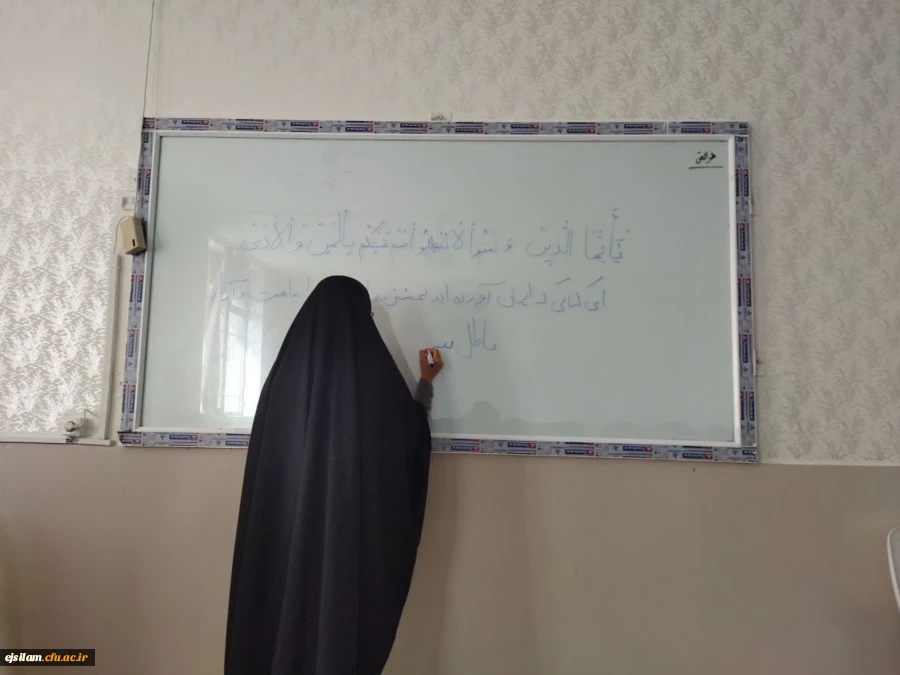 يَٰٓأَيُّهَا الَّذِينَ ءَامَنُوا۟ لَا تُبْطِلُوا۟ صَدَقَٰتِكُم بِالْمَنِّ وَالْأَذَىٰ
ای کسانی که ایمان آورده اید بخشش با منت و آزار
باطل
ejsilam.cfu.ac.ir